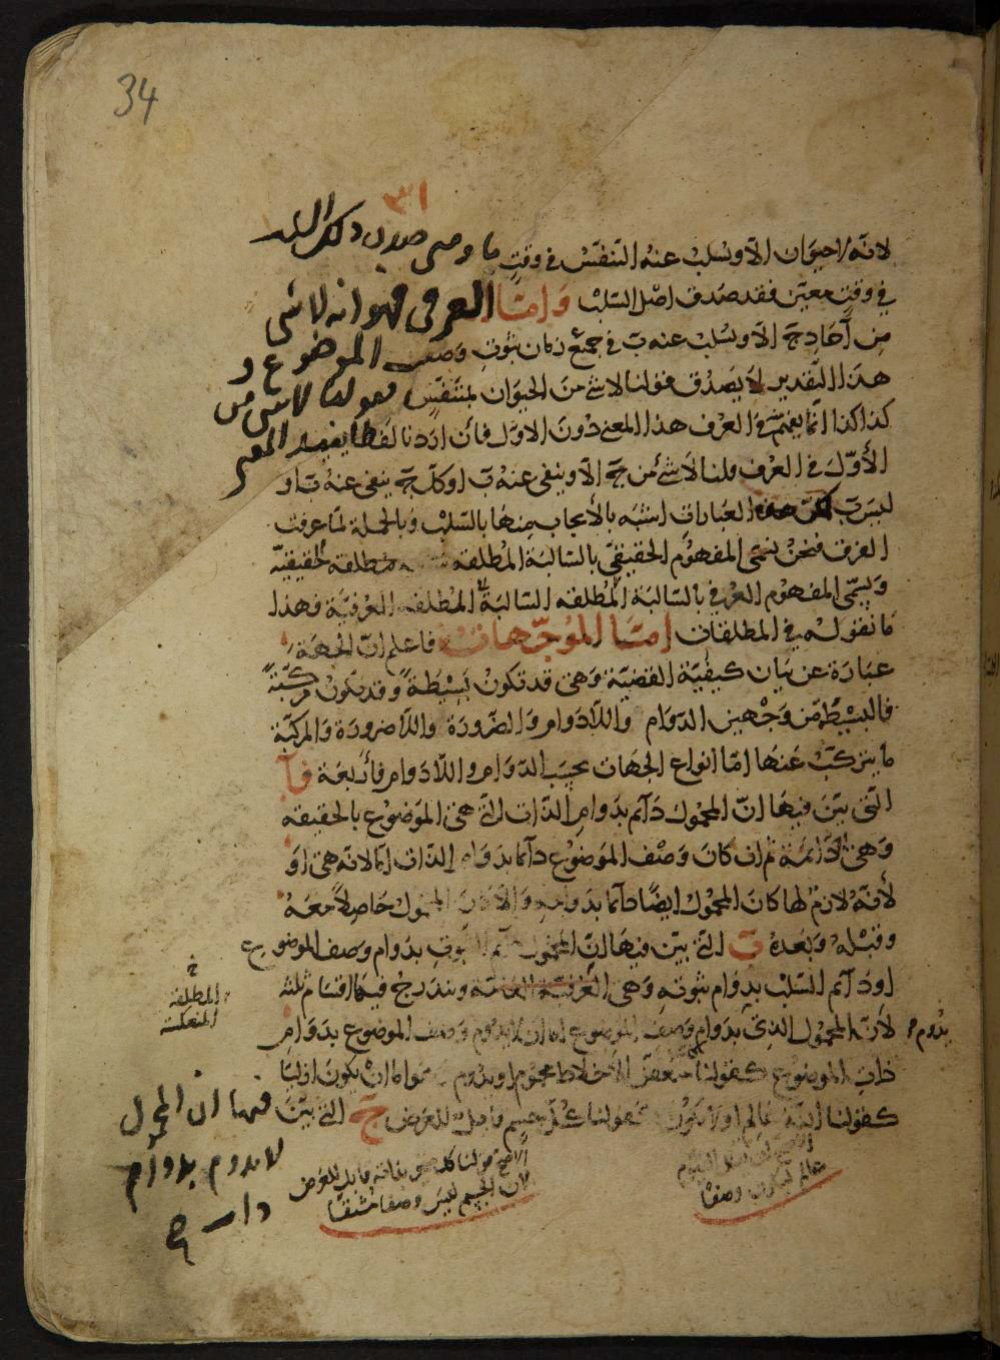 34
٣١
لانه لا حيوان الا ويسلب عنه التنفس في وقت ما ومتى صدق ذلك السلب
في وقت معين فقد صدق اصل السلب واما العرفي فهو انه لا شي
من آحاد ج الا ويسلب عنه ب في جميع زمان ثبوت وصف الموضوع و
هذا التقدير لا يصدق قولنا لا شي من الحيوان بمتنفس قولنا لا شي من
كذا كذا انما يفهم في العرف هذا المعنى دون الاول فان اردنا لفظا يفيد المعنى
الأول في العرف قلنا لا شئ من ج الا وينفى عنه ب او كل ج ينفى عنه ب او
ليس ب لكن هذه العبارات اشبه بالأيجاب منها بالسلب وبالجملة لما عرفت
الفرق فنحن نسمى المفهوم الحقيقي بالسالبة المطلقة مطلقة حقيقية
ويسمى المفهوم العرفي بالسالبة المطلقه السالبة المطلقه العرفية فهذا
ما نقوله في المطلقات اما الموجهات فاعلم ان الجهة
عبارة عن بيان كيفية القضية وهى قد تكون بسيطة وقد تكون مركبة
فالبسيطة من وجهين الدوام واللادوام والضرورة واللاضرورة والمركبة
ما يتركب عنها اما انواع الجهات بحسب الدوام واللادوام فأربعة آ
التى بين فيها ان المحمول دآئم بدوام الذات التى هى الموضوع بالحقيقه
وهى الدآئمة ثم ان كان وصف الموضوع دآئما بدوام الذات اما لانه هى او
لأنه لازم لها كان المحمول ايضا دآئما بدوامه والا كان المحمول حاصلا معه
وقبله وبعده ب التى بين فيها ان المحمول دآئم الثبوت بدوام وصف الموضوع
او دآئم السلب بدوام ثبوته وهى العرفية العامة ويندرج فيها اقسام ثلثه
لأن المحمول الذى بدوام وصف الموضوع اما ان لا يدوم وصف الموضوع بدوام
ذات الموضوع كقولنا متعفن الأخلاط محموم او يدوم اما ان يكون ازليا
كقولنا الله عالم او لا يكون كقولنا كل جسم قابل للعرض ج التى بين فيها ان المحمول
لا يدوم بدوام
يدوم
خ
المطلقة
المنعكسة
عالم ليكون وصفا
الاصح قولنا كل قابل للعرض
لان الجسم ليس وصفا مشتقا